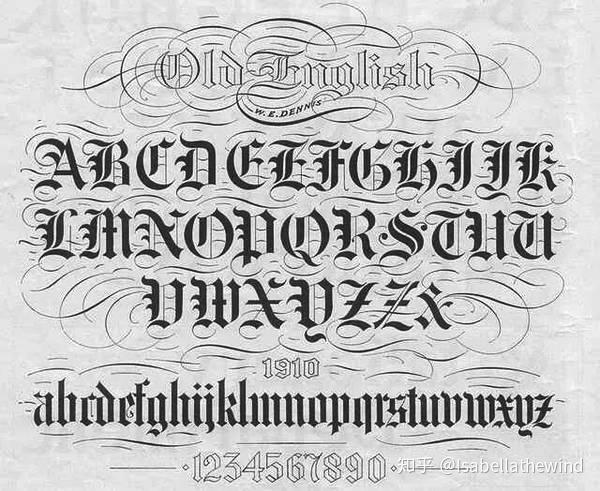 Old English
W.E.DENNIS
ABCDEEFGHIJK
LMNOPQRSTUU
VWXYZZ&
1910
abcdefghijklmnopqrstuvwxyz
·1234567890·
知乎 @Isabellathewind